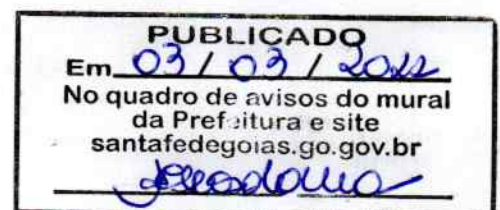 PUBLICADO
Em 03 / 03 / 2022
No quadro de avisos do mural
da Prefeitura e site
santafedegoias.go.gov.br